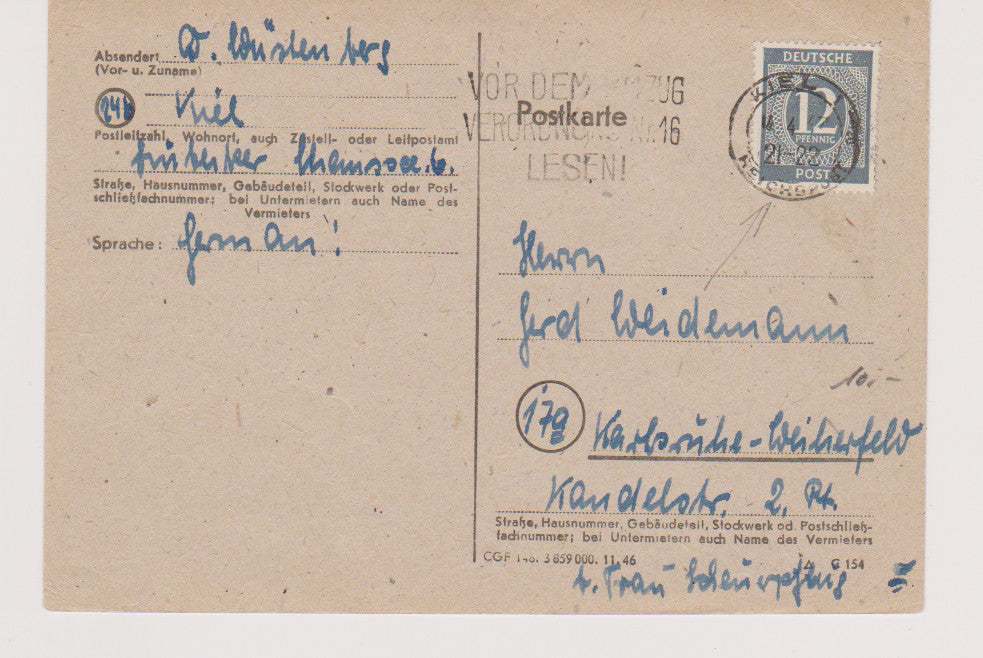 Absender:
D. Wüstenberg
(Vor- u. Zuname)
24b
Kiel
Postleitzahl, Wohnort, auch Zustell- oder Leitpostamt
Straße, Hausnummer, Gebäudeteil, Stockwerk oder Post-
schließfachnummer; bei Untermietern auch Name des
Vermieters
Sprache: German!
VOR DEM
VERORDNUNG Nr. 16
LESEN!
Postkarte
DEUTSCHE
12
PFENNIG
POST
KIEL
Herrn
Gerd Weidemann
10.-
17a Karlsruhe-Weiherfeld
Kandelstr. 2. Pt.
Straße, Hausnummer, Gebäudeteil, Stockwerk od. Postschließ-
fachnummer; bei Untermietern auch Name des Vermieters
CGF 3 859 000. 11.46
G 154
b. Frau